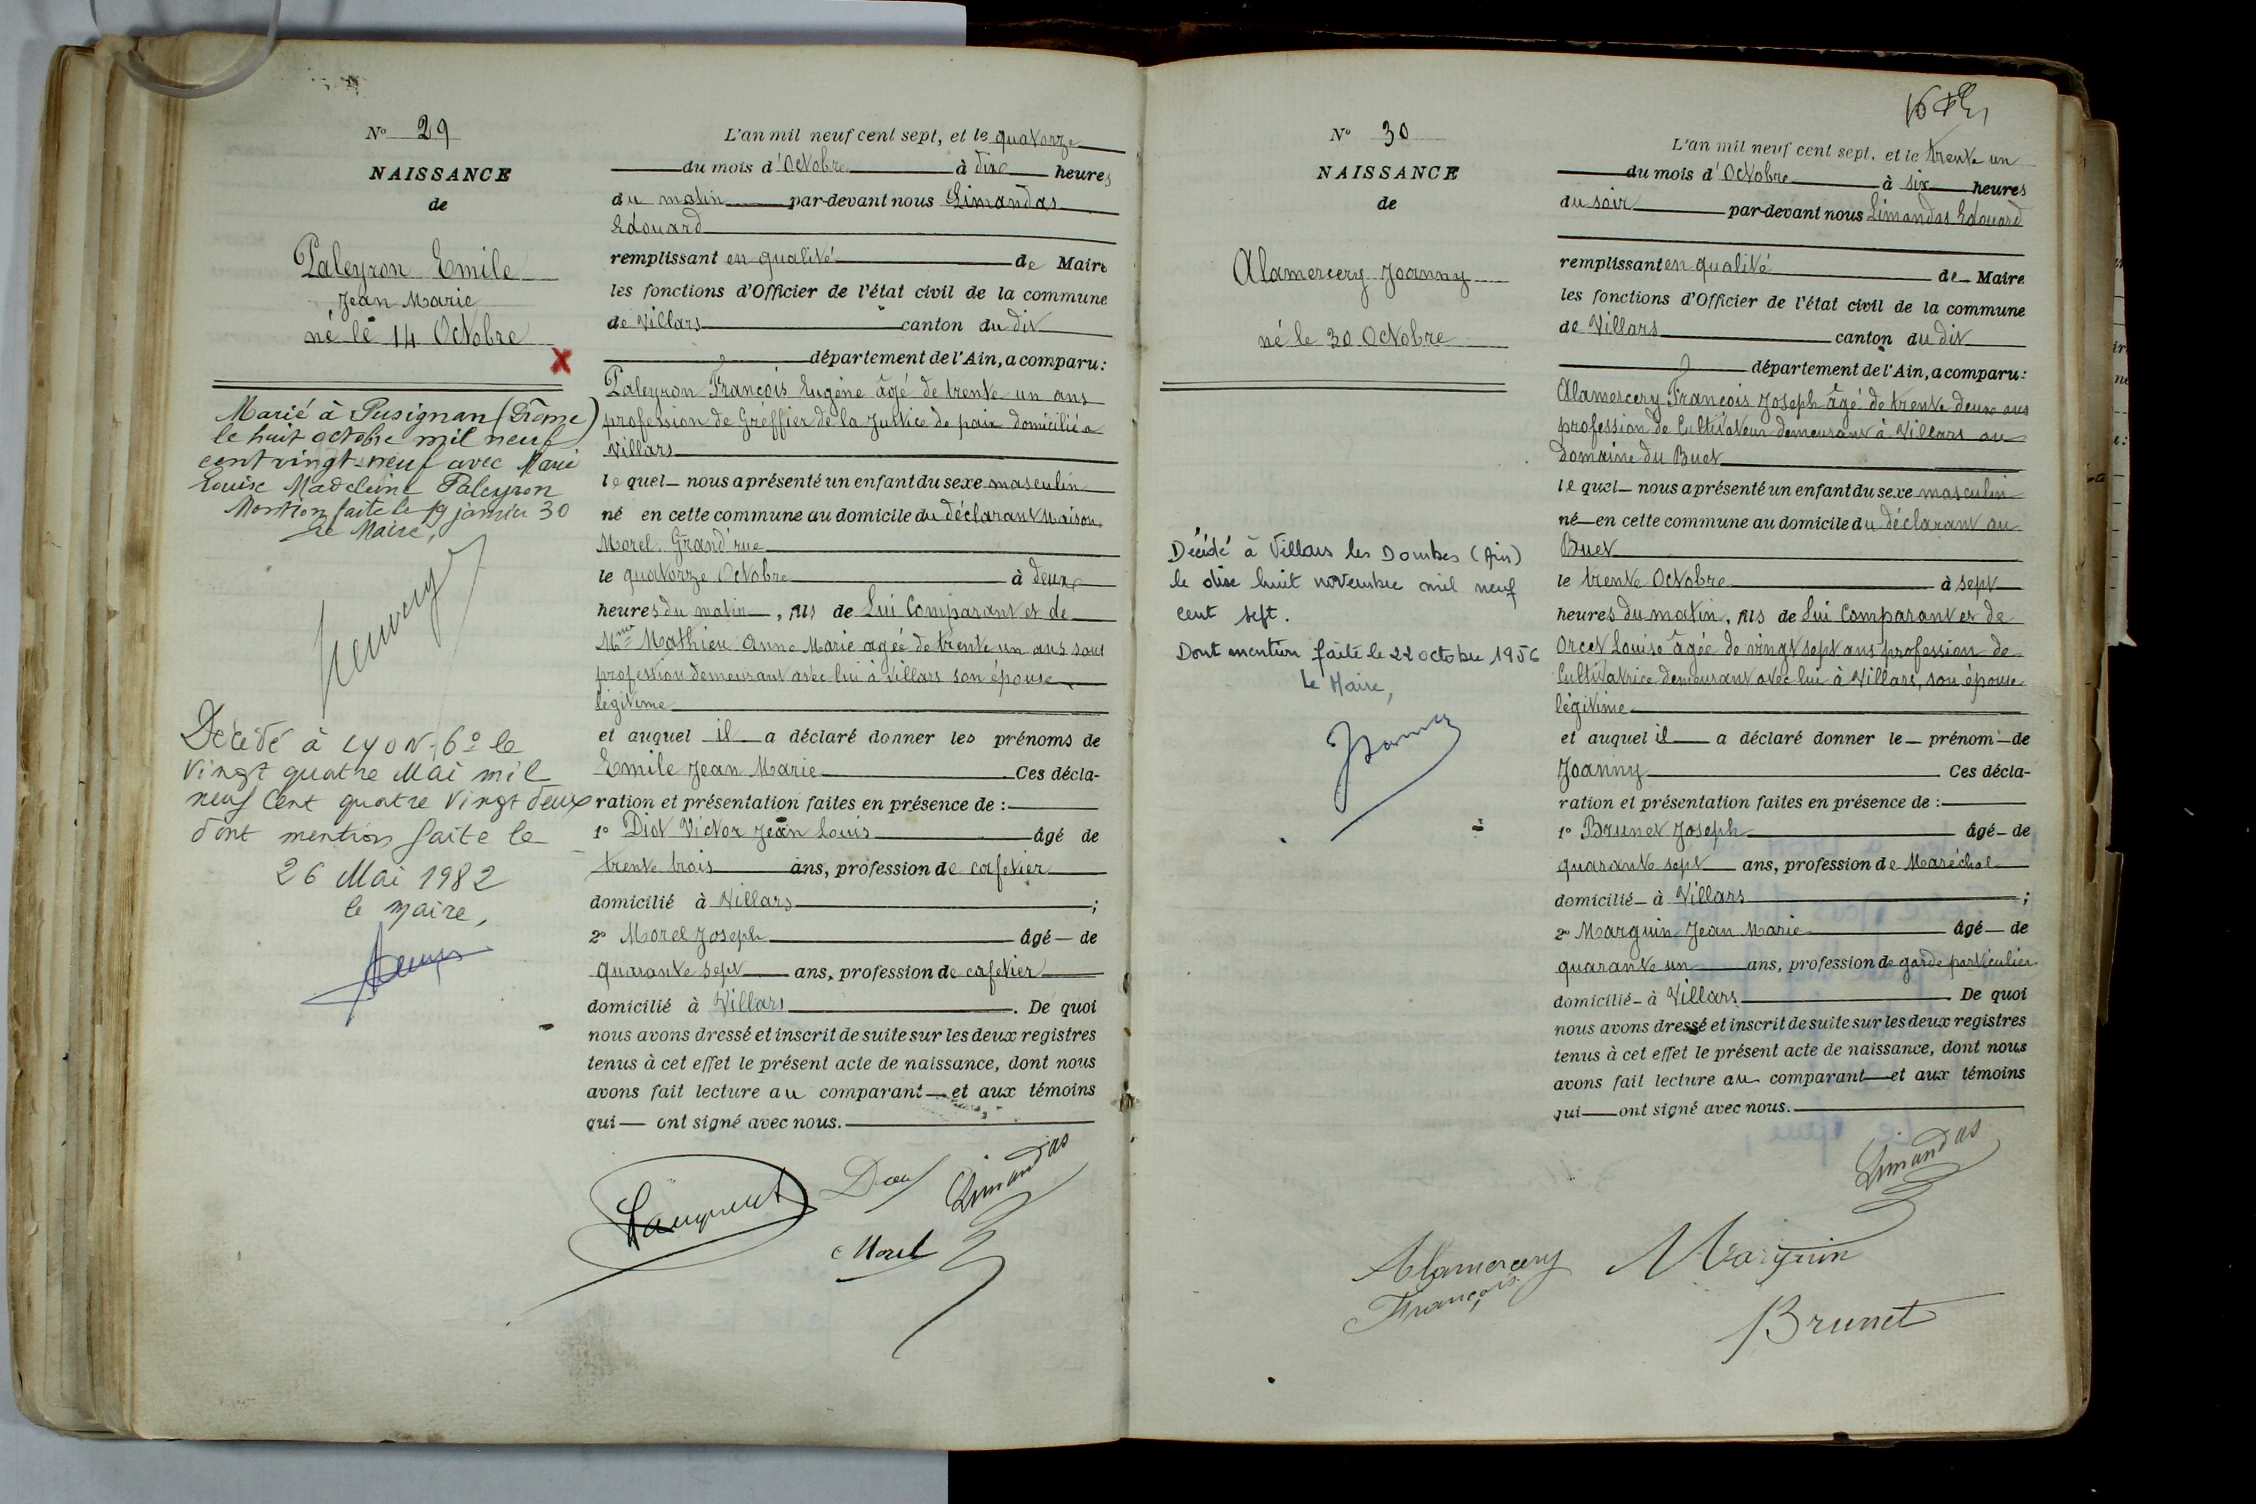 N° 29
NAISSANCE
de
Paleyron Emile
Jean Marie
né le 14 Octobre
X
Marié à Pusignan (Drôme)
le huit octobre mil neuf
cent vingt-neuf avec Marie
Louise Madeleine Paleyron
Mention faite le 19 janvier 30
Le Maire,
Décédé à LYON-6° le
vingt quatre Mai mil
neuf Cent quatre vingt deux
dont mention faite le
26 Mai 1982
le maire,
L'an mil neuf cent sept, et le quatorze
du mois d'Octobre à dix heures
du matin par-devant nous Limandas
Edouard
remplissant en qualité de Maire
les fonctions d'Officier de l'état civil de la commune
de Villars canton du dit
département de l'Ain, a comparu:
Paleyron François Eugène âgé de trente un ans
profession de Gréffier de la Justice de paix domicilié a
Villars
le quel nous a présenté un enfant du sexe masculin
né en cette commune au domicile du déclarant Maison
Morel Grand'rue
le quatorze Octobre à deux
heures du matin, fils de Lui Comparant et de
Mme Mathieu Anne Marie agée de trente un ans sans
profession demeurant avec lui à Villars son épouse
légitime
et auquel il a déclaré donner les prénoms de
Emile Jean Marie Ces décla-
ration et présentation faites en présence de :
1° Diot Victor Jean Louis âgé de
trente trois ans, profession de cafetier
domicilié à Villars ;
2° Morel Joseph âgé de
quarante sept ans, profession de cafetier
domicilié à Villars . De quoi
nous avons dressé et inscrit de suite sur les deux registres
tenus à cet effet le présent acte de naissance, dont nous
avons fait lecture au comparant et aux témoins
qui ont signé avec nous.
Limandas
Morel
N° 30
NAISSANCE
de
Alamercery Joanny
né le 30 Octobre
Décédé à Villars les Dombes (Ain)
le dix huit novembre mil neuf
cent sept.
Dont mention faite le 22 octobre 1956
Le Maire,
L'an mil neuf cent sept, et le trente un
du mois d'Octobre à six heures
du soir par-devant nous Limandas Edouard
remplissant en qualité de Maire
les fonctions d'Officier de l'état civil de la commune
de Villars canton du dit
département de l'Ain, a comparu:
Alamercery François Joseph âgé de trente deux ans
profession de Cultivateur demeurant à Villars au
Domaine du Buet
le quel nous a présenté un enfant du sexe masculin
né en cette commune au domicile du déclarant au
Buet
le trente Octobre à sept
heures du matin, fils de Lui Comparant et de
Orcet Louise âgée de vingt sept ans profession de
Cultivatrice demeurant avec lui à Villars, son épouse
légitime
et auquel il a déclaré donner le prénom de
Joanny Ces décla-
ration et présentation faites en présence de :
1° Brunet Joseph âgé de
quarante sept ans, profession de Maréchal
domicilié à Villars ;
2° Marguin Jean Marie âgé de
quarante un ans, profession de garde particulier
domicilié à Villars . De quoi
nous avons dressé et inscrit de suite sur les deux registres
tenus à cet effet le présent acte de naissance, dont nous
avons fait lecture au comparant et aux témoins
qui ont signé avec nous.
Limandas
Alamercery
François
Marguin
Brunet